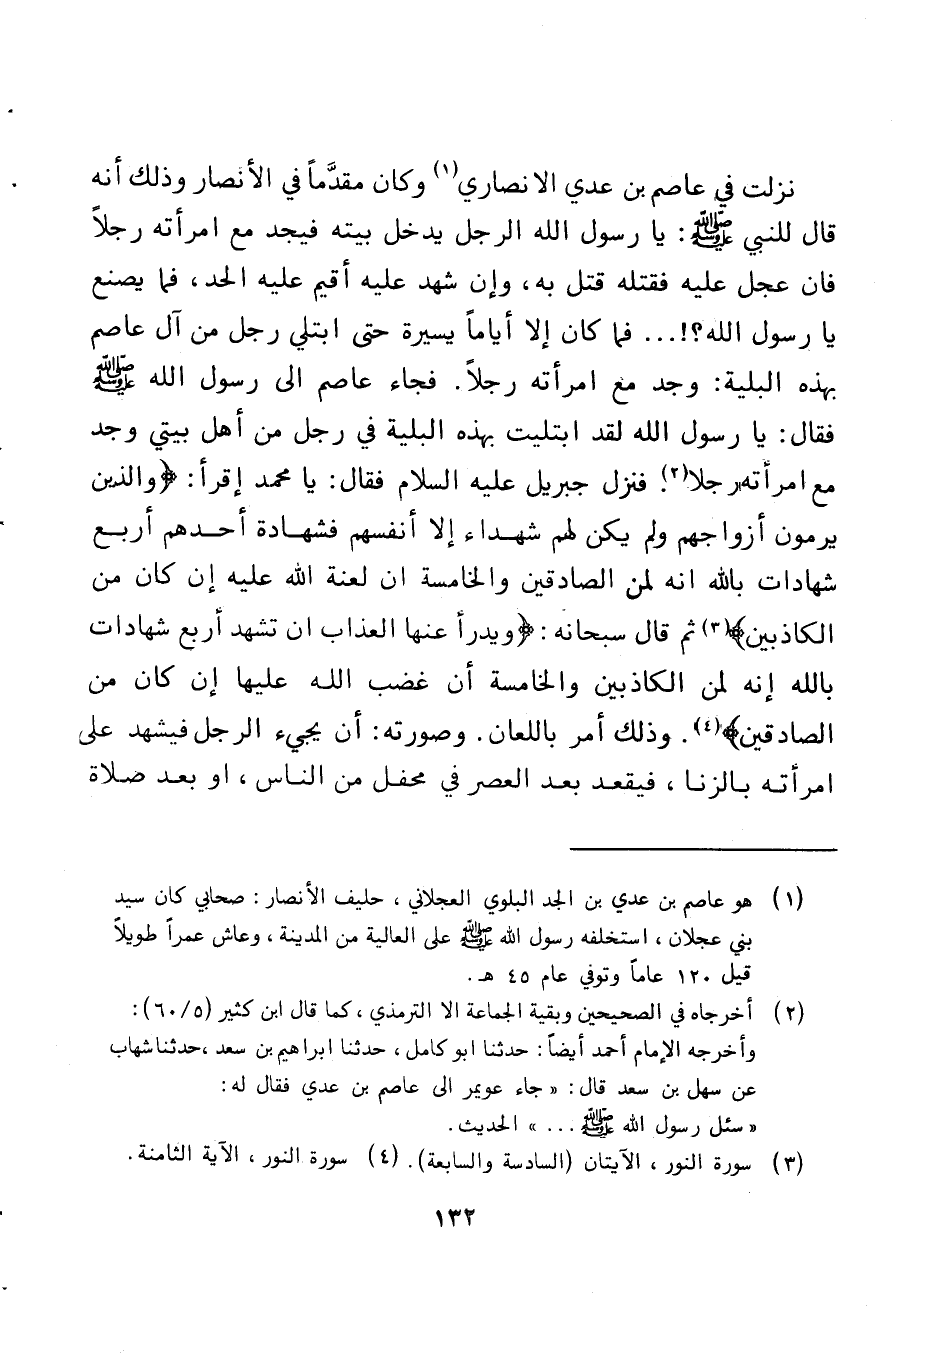 نزلت في عاصم بن عدي الانصاري(١) وكان مقدَّماً في الأنصار وذلك أنه
قال للنبي ﷺ: يا رسول الله الرجل يدخل بيته فيجد مع امرأته رجلاً
فان عجل عليه فقتله قتل به، وإن شهد عليه أقيم عليه الحد، فما يصنع
يا رسول الله؟!... فما كان إلا أياماً يسيرة حتى ابتلي رجل من آل عاصم
بهذه البلية: وجد مع امرأته رجلاً. فجاء عاصم الى رسول الله ﷺ
فقال: يا رسول الله لقد ابتليت بهذه البلية في رجل من أهل بيتي وجد
مع امرأته رجلا(٢). فنزل جبريل عليه السلام فقال: يا محمد إقرأ: ﴿والذين
يرمون أزواجهم ولم يكن لهم شهداء إلا أنفسهم فشهادة أحدهم أربع
شهادات بالله انه لمن الصادقين والخامسة ان لعنة الله عليه إن كان من
الكاذبين﴾(٣) ثم قال سبحانه: ﴿ويدرأ عنها العذاب ان تشهد أربع شهادات
بالله إنه لمن الكاذبين والخامسة أن غضب الله عليها إن كان من
الصادقين﴾(٤). وذلك أمر باللعان. وصورته: أن يجيء الرجل فيشهد على
امرأته بالزنا، فيقعد بعد العصر في محفل من الناس، او بعد صلاة
(١) هو عاصم بن عدي بن الجد البلوي العجلاني، حليف الأنصار: صحابي كان سيد
بني عجلان، استخلفه رسول الله ﷺ على العالية من المدينة، وعاش عمراً طويلاً
قيل ١٢٠ عاماً وتوفي عام ٤٥ هـ.
(٢) أخرجاه في الصحيحين وبقية الجماعة الا الترمذي، كما قال ابن كثير (٦٠/٥):
وأخرجه الإمام أحمد أيضاً: حدثنا ابو كامل، حدثنا ابراهيم بن سعد، حدثنا شهاب
عن سهل بن سعد قال: « جاء عويمر الى عاصم بن عدي فقال له:
« سئل رسول الله ﷺ ... » الحديث.
(٣) سورة النور، الآيتان (السادسة والسابعة). (٤) سورة النور، الآية الثامنة.
١٣٢